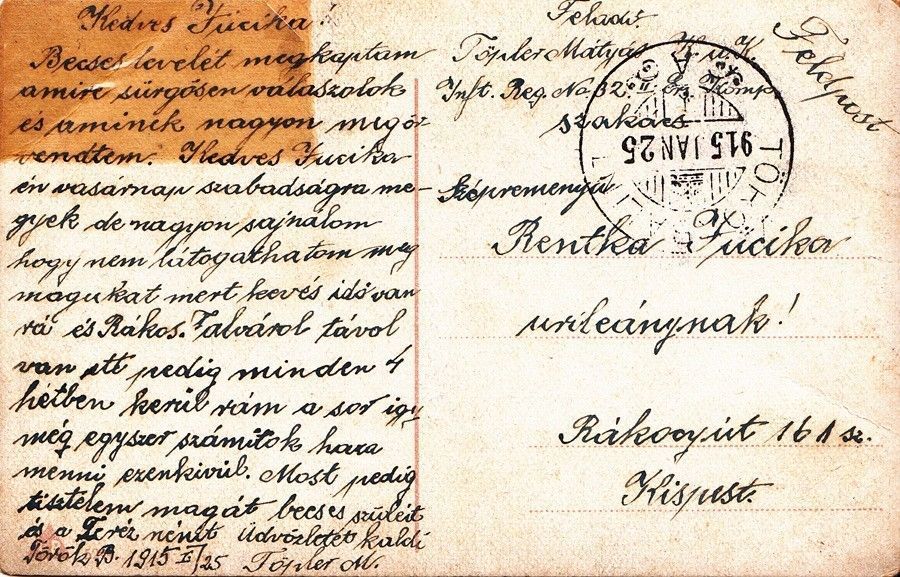 Kedves Jucika
Becses levelét megkaptam
amire sürgősen válaszolok
és aminek nagyon megör-
vendtem. Kedves Jucika
én vasárnap szabadságra me-
gyek de nagyon sajnálom
hogy nem látogathatom meg
magukat mert kevés idő van
rá és Rákos. Falváról távol
van itt pedig minden 4
hétben kerül rám a sor így
még egyszer számítok haza
menni ezenkivül. Most pedig
tisztelem magát becses szüleit
és a Teréz nénit Üdvözletét kaldi
Török B. 1915 I/25 Töpler M.
Feladó.
Töpler Mátyás K. u. K.
Inft. Reg. No 32. Ers. Komp.
szakács
Feldpost
915 JAN 25
Szépreményű
Rentka Jucika
urileánynak!
Rákoczyút 161 sz.
Kispest.